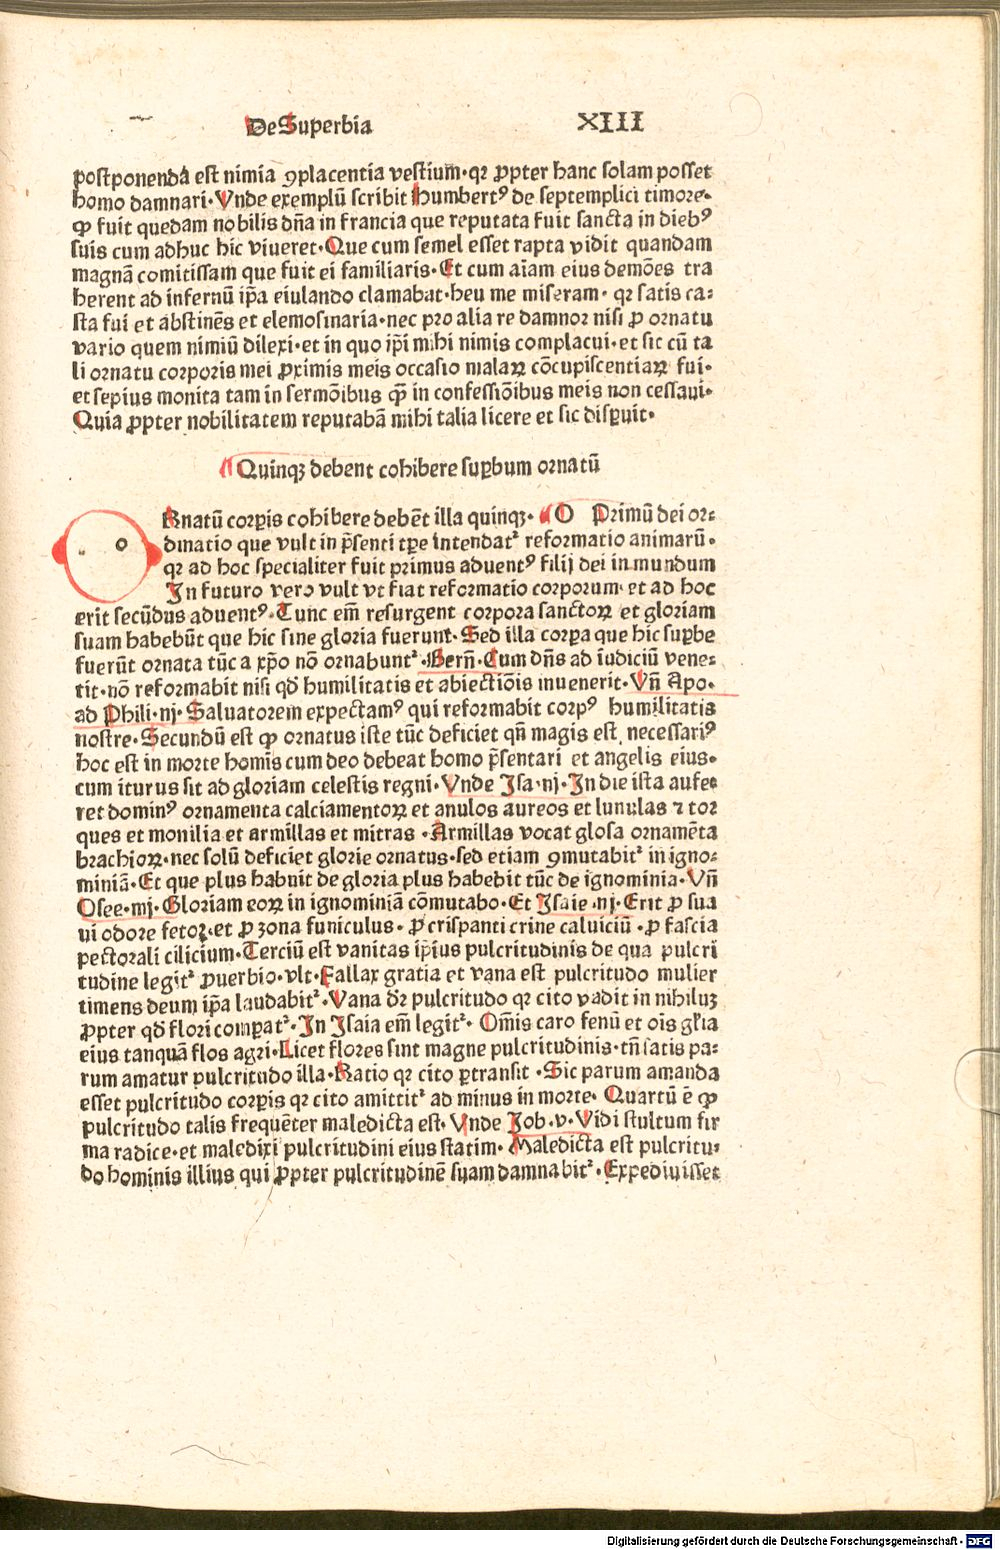 De Superbia XIII
postponenda est nimia ꝯplacentia vestium·qꝛ ꝓpter hanc solam posset
homo damnari·Vnde exemplū scribit Humbertꝰ de septemplici timore·
ꝙ fuit quedam nobilis dn̄a in francia que reputata fuit sancta in diebꝰ
suis cum adhuc hic viueret·Que cum semel esset rapta vidit quandam
magnā comitissam que fuit ei familiaris·Et cum aīam eius demōes tra
herent ad infernū ip̄a eiulando clamabat·heu me miseram· qꝛ satis ca⸗
sta fui et abstinēs et elemosinaria·nec pro alia re damnor nisi ꝓ ornatu
vario quem nimiū dilexi·et in quo ip̄i mihi nimis complacui·et sic cū ta
li ornatu corporis mei ꝓximis meis occasio malaꝝ cōcupiscentiaꝝ fui·
et sepius monita tam in sermōibus ꝙ̄ in confessiōibus meis non cessaui·
Quia ꝓpter nobilitatem reputabā mihi talia licere et sic disꝑuit·
Quinqꝫ debent cohibere suꝑbum ornatū
o Rnatū corꝑis cohibere debēt illa quinqꝫ· O Primū dei or⸗
dinatio que vult in p̄senti tꝑe intendatᷣ reformatio animarū·
qꝛ ad hoc specialiter fuit primus aduentꝰ filij dei in mundum
In futuro vero vult vt fiat reformatio corporum· et ad hoc
erit secūdus aduentꝰ·Tunc em̄ resurgent corpora sanctoꝝ et gloriam
suam habebūt que hic sine gloria fuerunt·Sed illa corꝑa que hic suꝑbe
fuerūt ornata tūc a xp̄o nō ornabuntᷣ·Bern̄·Cum dn̄s ad iudiciū vene⸗
rit·nō reformabit nisi qd̄ humilitatis et abiectiōis inuenerit·Vn̄ Apo·
ad Phili·iij·Saluatorem expectamꝰ qui reformabit corpꝰ humilitatis
nostre·Secundū est ꝙ ornatus iste tūc deficiet qn̄ magis est necessariꝰ
hoc est in morte homīs cum deo debeat homo p̄sentari et angelis eius·
cum iturus sit ad gloriam celestis regni·Vnde Isa·iij·In die ista aufe⸗
ret dominꝰ ornamenta calciamentoꝝ et anulos aureos et lunulas ⁊ tor
ques et monilia et armillas et mitras ·Armillas vocat glosa ornamēta
brachioꝝ·nec solū deficiet glorie ornatus·sed etiam ꝯmutabitᷣ in igno⸗
miniā·Et que plus habuit de gloria plus habebit tūc de ignominia·Vn̄
Osee·iiij·Gloriam eoꝝ in ignominiā cōmutabo·Et Isaie·iij·Erit ꝓ sua
ui odore fetor·et ꝓ zona funiculus· ꝓ crispanti crine caluiciū ·ꝓ fascia
pectorali cilicium·Terciū est vanitas ip̄ius pulcritudinis de qua pulcri
tudine legitᷣ ꝓuerbio·vlt·Fallax gratia et vana est pulcritudo mulier
timens deum ip̄a laudabitᷣ·Vana dꝛ pulcritudo qꝛ cito vadit in nihiluꝫ
ꝓpter qd̄ flori comparatᷣ·In Isaia em̄ legitᷣ· Om̄is caro fenū et oīs gl̄ia
eius tanquā flos agri·Licet flores sint magne pulcritudinis·tn̄ satis pa⸗
rum amatur pulcritudo illa·Ratio qꝛ cito ꝑtransit ·Sic parum amanda
esset pulcritudo corꝑis qꝛ cito amittitᷣ ad minus in morte· Quartū ē ꝙ
pulcritudo talis frequēter maledicta est· Vnde Job·v·Vidi stultum fir
ma radice·et maledixi pulcritudini eius statim· Maledicta est pulcritu⸗
do hominis illius qui ꝓpter pulcritudinē suam damnabitᷣ·Expediuisset
Digitalisierung gefördert durch die Deutsche Forschungsgemeinschaft - DFG